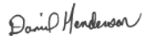 Daniel Henderson